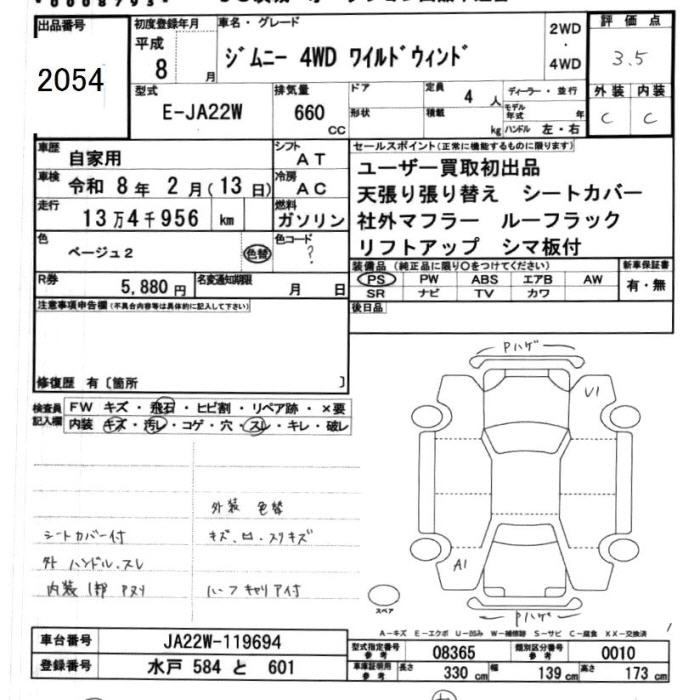 出品番号
2054
初度登録年月
平成
8 月
車名・グレード
ジムニー 4WD ワイルドウィンド
2WD
・
4WD
評価点
3.5
外装 内装
C C
型式
E-JA22W
排気量
660
CC
ドア
形状
定員
4 人
積載
kg
ディーラー・並行
モデル年式 年
ハンドル 左・右
車歴
自家用
シフト
AT
車検
令和 8年 2月(13日)
冷房
AC
走行
13万4千956 km
燃料
ガソリン
色
ベージュ2
色替
色コード
?
R券
5,880円
名変通知期限
月 日
セールスポイント(正常に機能するものに限ります)
ユーザー買取初出品
天張り張り替え シートカバー
社外マフラー ルーフラック
リフトアップ シマ板付
装備品(純正品に限り○をつけてください)
PS PW ABS エアB AW
SR ナビ TV カワ
新車保証書
有・無
後日品
注意事項申告欄(不具合内容等は具体的に記入して下さい)
修復歴 有〔箇所 〕
検査員記入欄
FW キズ・飛石・ヒビ割・リペア跡・×要
内装 キズ・汚レ・コゲ・穴・スレ・キレ・破レ
外装 色替
シートカバー付
キズ、凹、スリキズ
外 ハンドル、スレ
内装 1部 アヌリ
ハーフキャリア付
Pハゲ
U1
A1
Pハゲ
スペア
A−キズ E−エクボ U−凹み W−補修跡 S−サビ C−腐食 XX−交換済
車台番号
JA22W-119694
登録番号
水戸 584 と 601
型式指定番号
参考
08365
類別区分番号
参考
0010
車庫証明用
参考
長さ
330 cm
幅
139 cm
高さ
173 cm